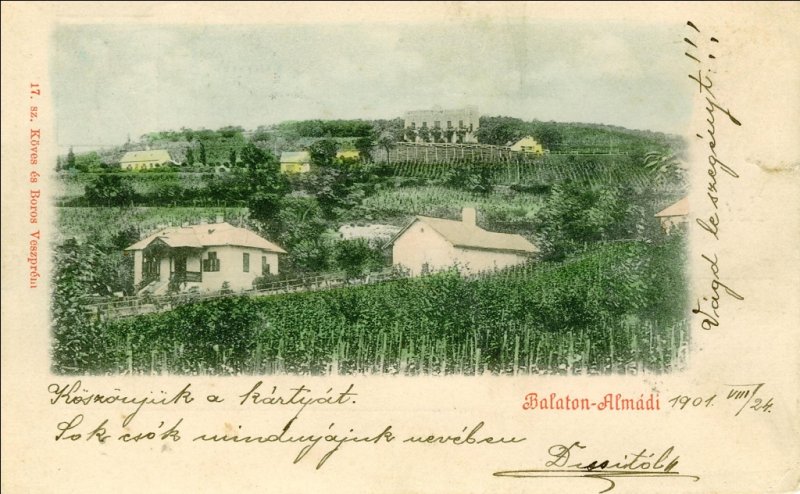 17. sz. Köves és Boros Veszprém
Vágd le szegényt!!!
Köszönjük a kártyát.
Balaton-Almádi 1901. VIII/24.
Sok csók mindnyájunk nevében
Dussitól